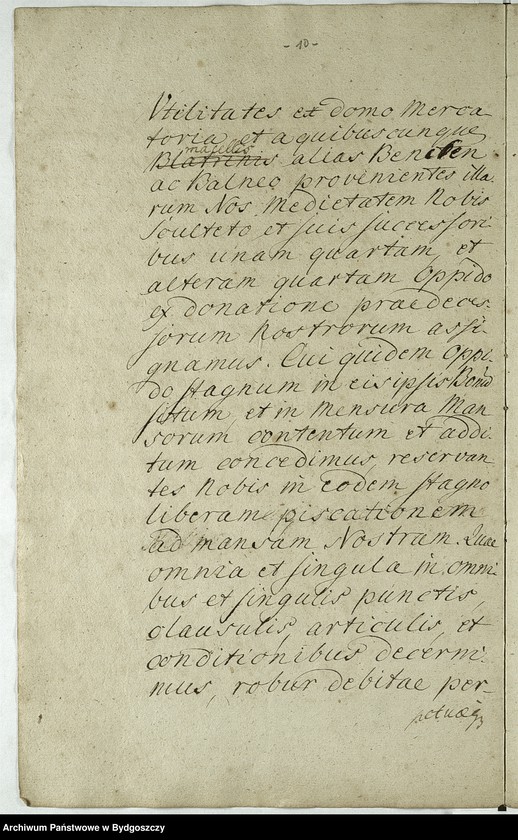 - 10 -
Vtilitates ex domo Merca-
toria et a quibuscunque
macellis
Blatrinis alias Bencken
ac Balneo provenientes illa-
rum Nos Medietatem Nobis
Sculteto et suis successori-
bus unam quartam, et
alteram quartam Oppido
ex donatione praedeces-
sorum Nostrorum assi-
gnamus. Cui quidem Oppi-
do stagnum in eis ipsis Bonis
situm, et in Mensura Man-
sorum contentum et addi-
tum concedimus, reservan-
tes Nobis in eodem stagno
liberam piscationem
ad mansam Nostram. Quae
omnia et singula in omni-
bus et singulis punctis,
clausulis, articulis, et
conditionibus decerni-
mus, robur debitae per-
petuaeq
Archiwum Państwowe w Bydgoszczy